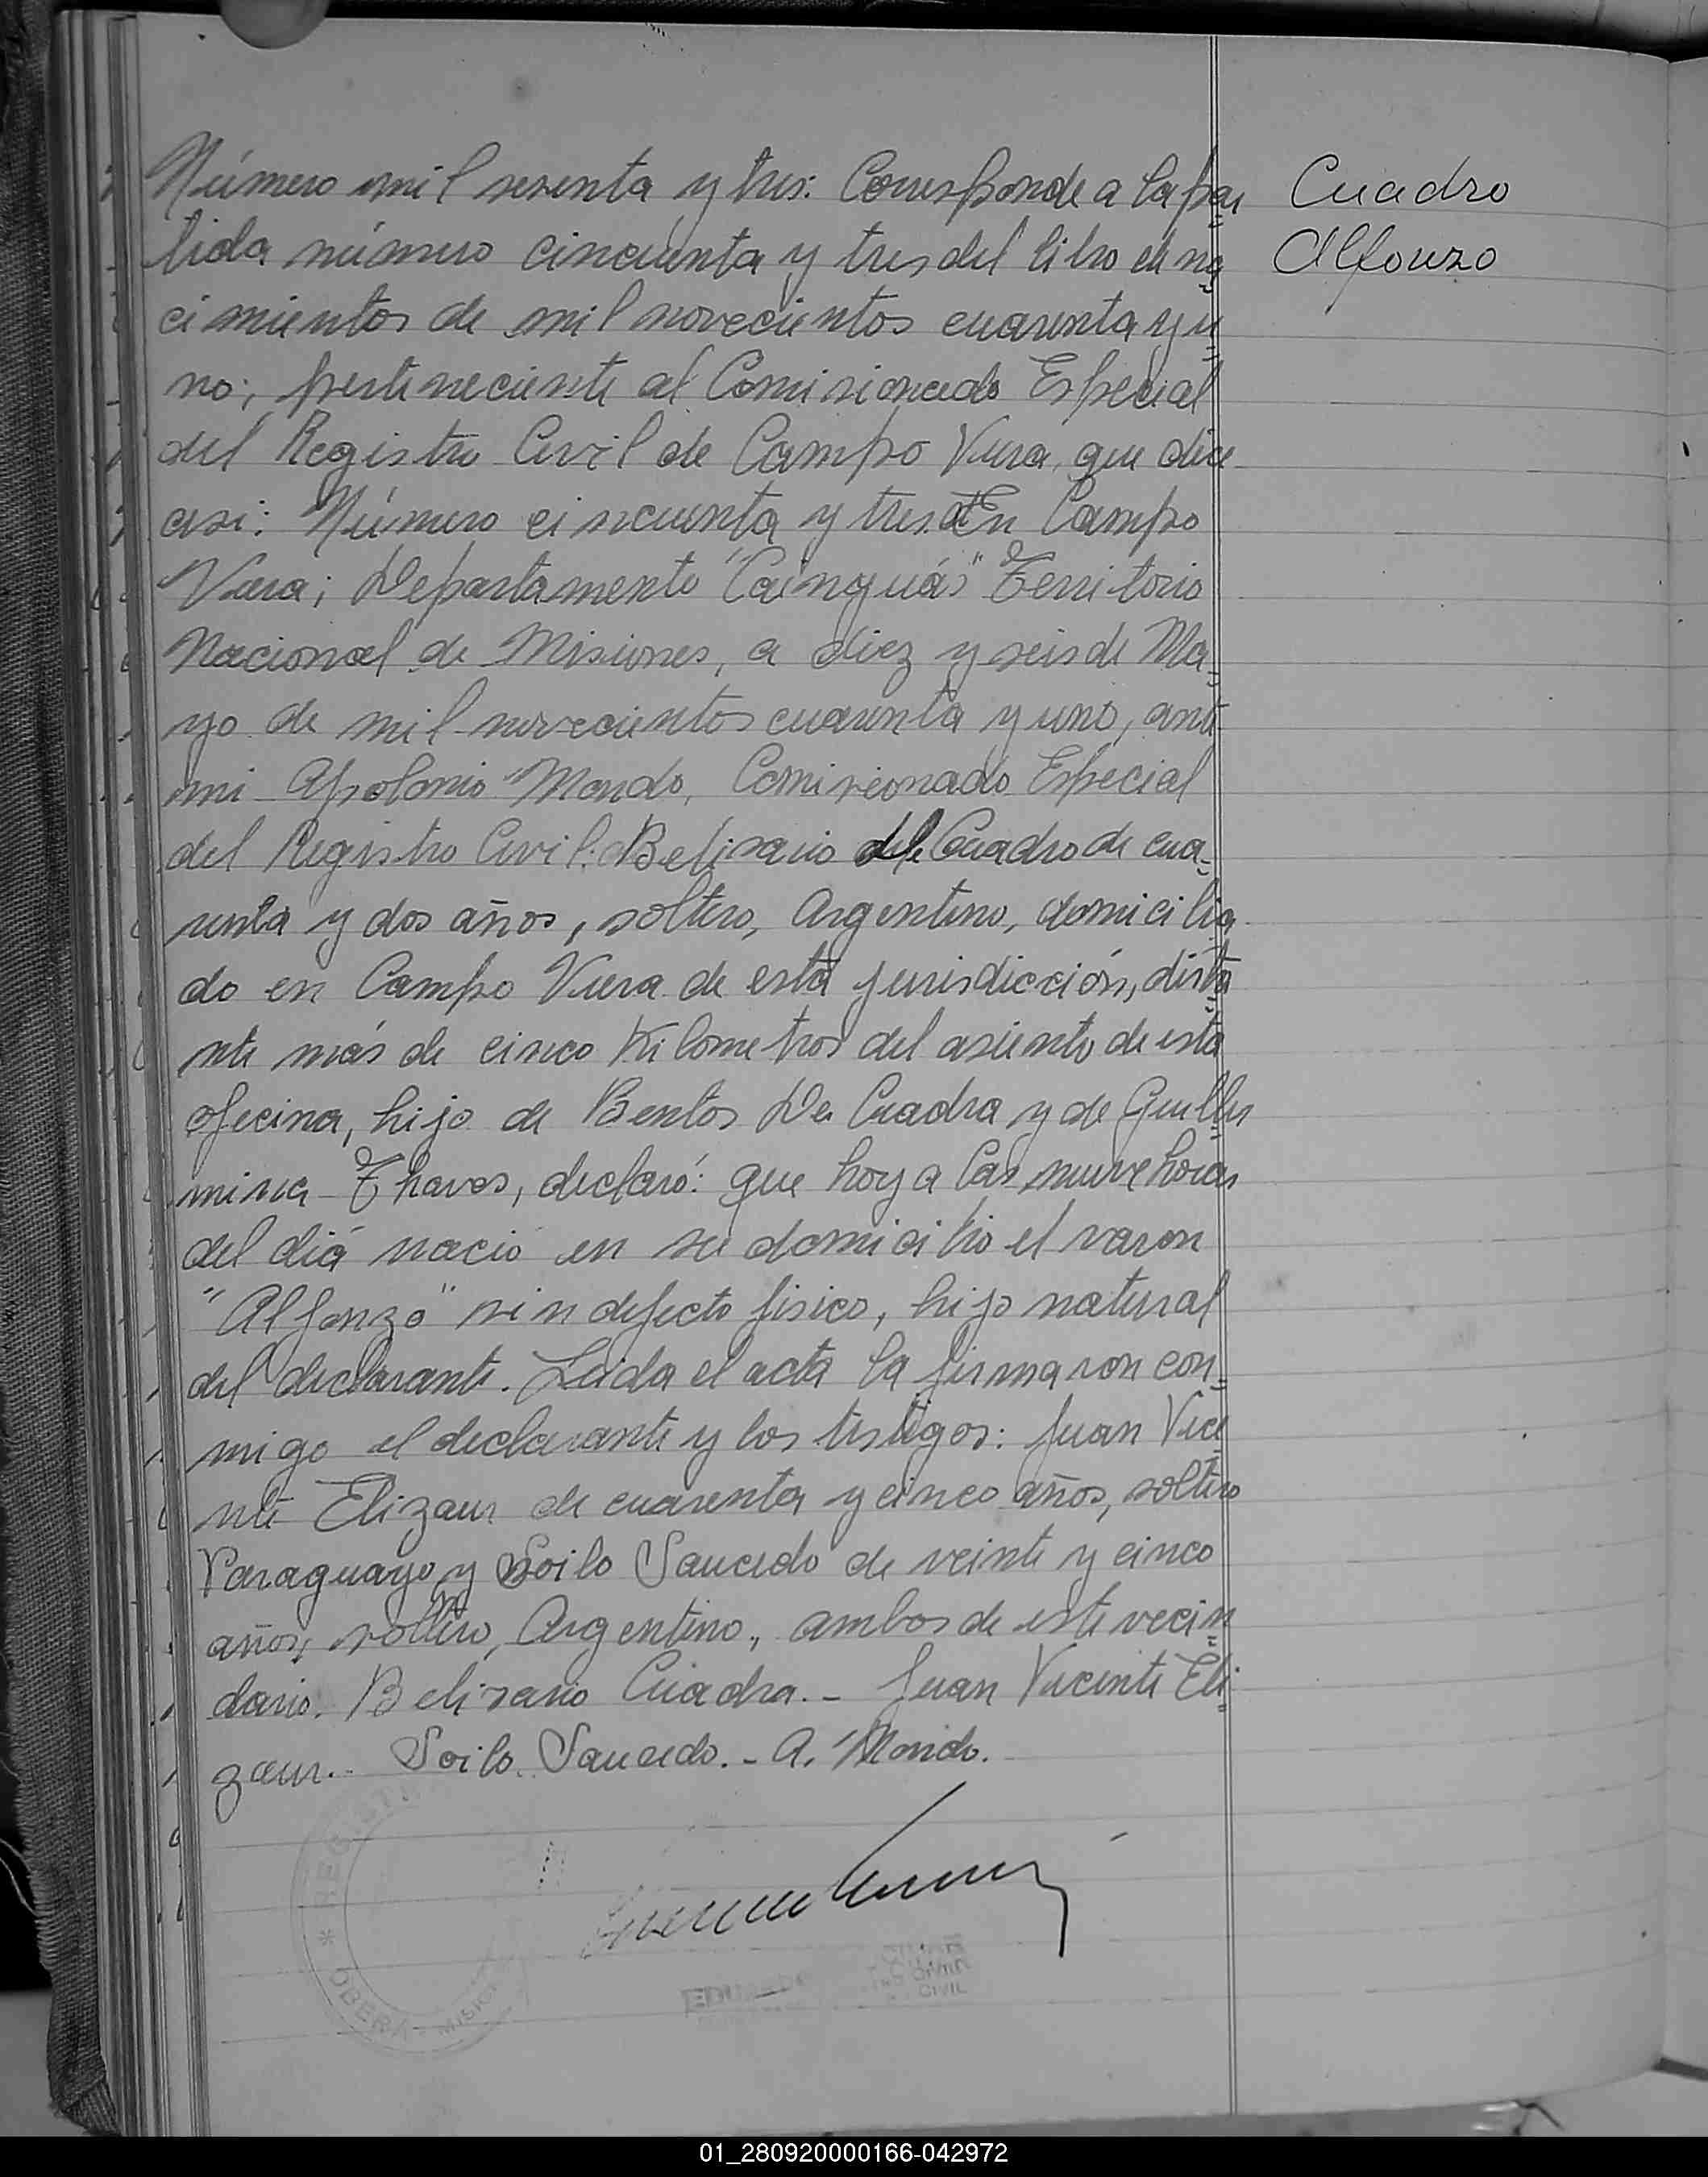 Número mil sesenta y tres: Corresponde a la par
tida número cincuenta y tres del libro de na
cimientos de mil novecientos cuarenta y u
no; perteneciente al Comisionado Especial
del Registro Civil de Campo Viera, que dice
asi: Número cincuenta y tres. En Campo
Viera; Departamento "Cainguás" Territorio
Nacional de Misiones, a diez y seis de Ma
yo de mil novecientos cuarenta y uno, ante
mi Apolonio Mondo, Comisionado Especial
del Registro Civil: Belisario de Cuadro de cua
renta y dos años, soltero, Argentino, domicilia
do en Campo Viera de esta jurisdicción, dista
nte más de cinco Kilometros del asiento de esta
oficina, hijo de Bentos De Cuadra y de Guiller
mina Thaves, declaró: que hoy a las nueve horas
del diá nació en su domicilio el varon
"Alfonzo" sin defecto fisico, hijo natural
del declarante. Leida el acta la firmaron con
migo el declarante y los testigos: Juan Vice
nte Elizaur de cuarenta y cinco años, soltero
Paraguayo y Soilo Saucedo de veinte y cinco
años, soltero, Argentino, ambos de este vecin
dario. Belisario Cuadra. - Juan Vicente Eli
zaur. - Soilo Saucedo. - A. Mondo.
Cuadro
Alfonzo
REGIST
OBERA - MISION
CIVIL
01_280920000166-042972